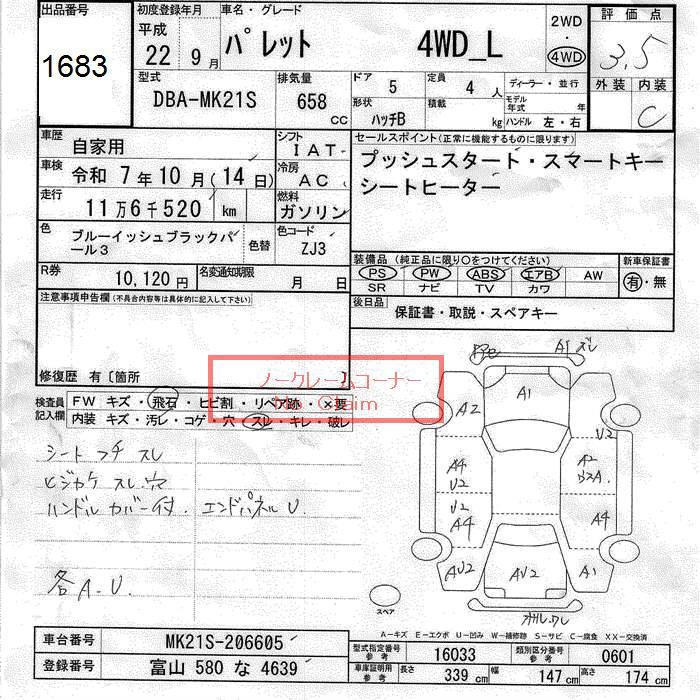 出品番号
1683
初度登録年月
平成
22 9月
車名・グレード
パレット 4WD_L
2WD
・
4WD
評価点
3.5
外装 内装
C
型式
DBA-MK21S
排気量
658 CC
ドア 5
定員 4 人
ディーラー・並行
形状 ハッチB
積載 kg
モデル年式 年
ハンドル 左・右
車歴 自家用
シフト IAT
車検 令和 7年10月(14日)
冷房 AC
走行 11万6千520 km
燃料 ガソリン
色 ブルーイッシュブラックパール3
色替
色コード ZJ3
R券 10,120円
名変通知期限 月 日
セールスポイント(正常に機能するものに限ります)
プッシュスタート・スマートキー
シートヒーター
装備品(純正品に限り○をつけてください)
PS PW ABS エアB AW
SR ナビ TV カワ
新車保証書
有・無
後日品 保証書・取説・スペアキー
注意事項申告欄(不具合内容等は具体的に記入して下さい)
修復歴 有〔箇所 〕
ノークレームコーナー
No Claim
検査員記入欄
FW キズ・飛石・ヒビ割・リペア跡・×要
内装 キズ・汚レ・コゲ・穴・スレ・キレ・破レ
シート フチ スレ
ヒジカケ スレ.穴
ハンドル カバー付. エンドパネル U.
各 A.U.
A1 ズレ
A1
A2
U2
A4
U2
A2
U2
A4
A4
AU2
AU2
A1
スペア
A-キズ E-エクボ U-凹み W-補修跡 S-サビ C-腐食 XX-交換済
車台番号 MK21S-206605
登録番号 富山 580 な 4639
型式指定番号 参考 16033
類別区分番号 参考 0601
車庫証明用 参考 長さ 339 cm 幅 147 cm 高さ 174 cm